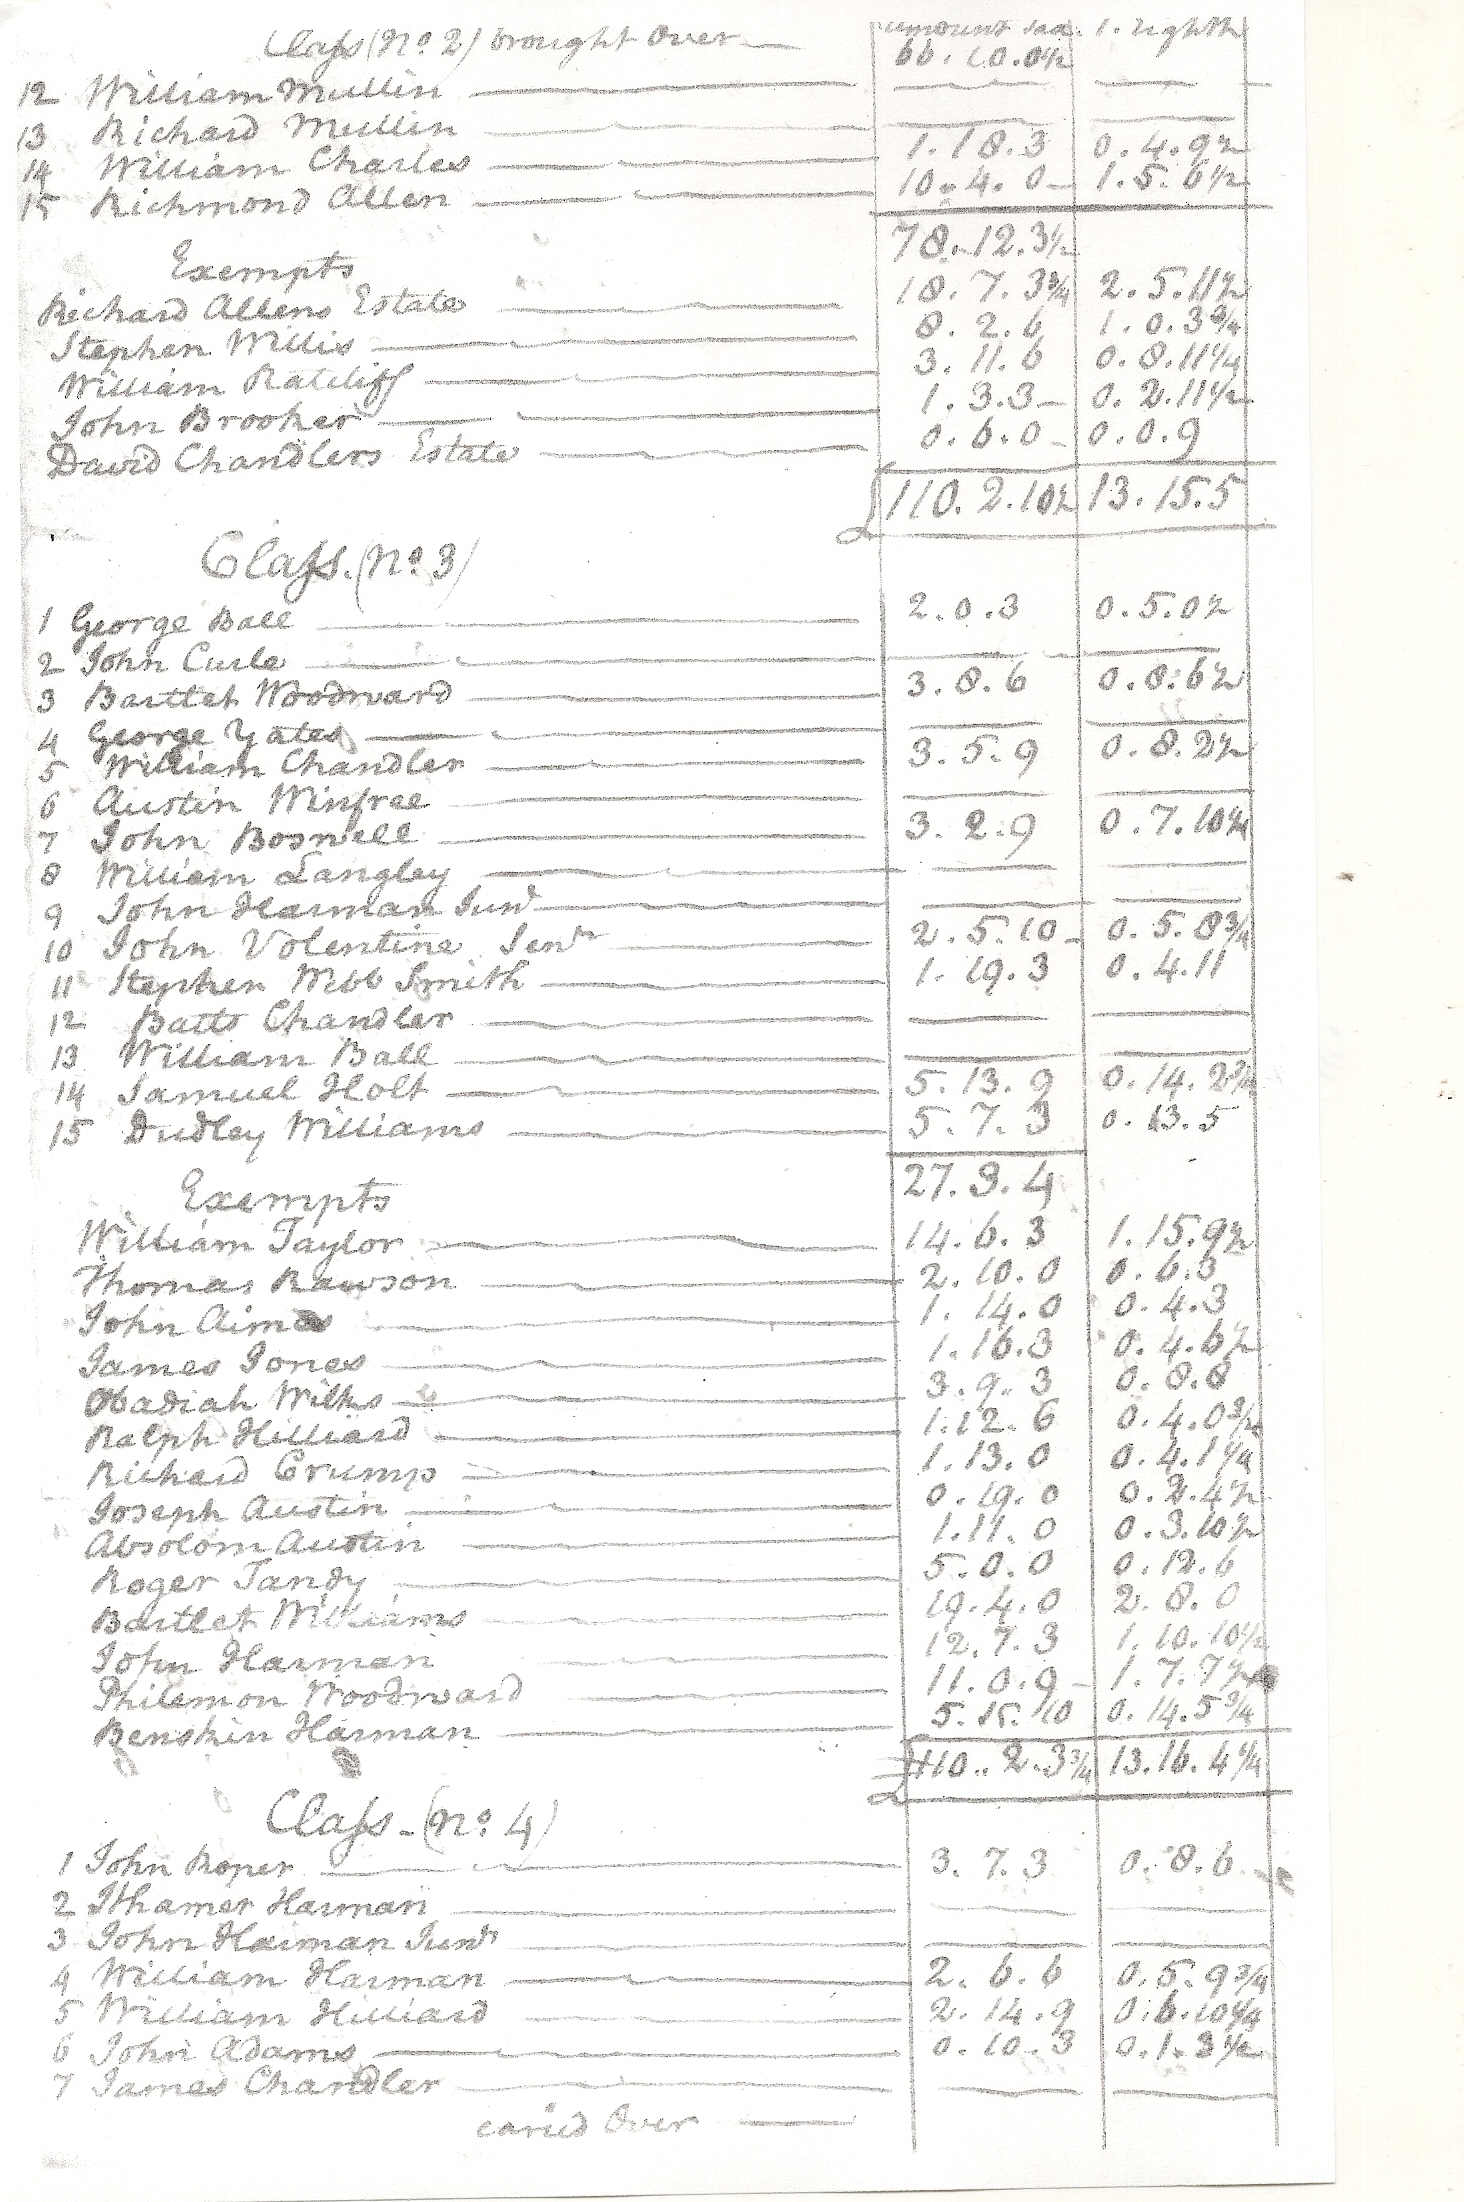 Class (No. 2) brought Over amount 1. eighth
66.10.0½
12 William Mullin
13 Richard Mullin
14 William Charles 1.18.3 0.4.9½
15 Richmond Allen 10.4.0 1.5.6½
78.12.3½
Exempts
Richard Allens Estate 18.7.3¾ 2.5.11½
Stephen Willis 8.2.6 1.0.3¾
William Ratcliff 3.11.6 0.8.11¼
John Brooker 1.3.3 0.2.11½
David Chandlers Estate 0.6.0 0.0.9
110.2.10½ 13.15.5
Class. (No. 3)
1 George Ball 2.0.3 0.5.0½
2 John Curle
3 Bartlet Woodward 3.8.6 0.8.6½
4 George Yates
5 William Chandler 3.5.9 0.8.2½
6 Austin Winfree
7 John Boswell 3.2.9 0.7.10¼
8 William Langley
9 John Harman Junr
10 John Volentine Senr 2.5.10 0.5.8¾
11 Stephen Webb Smith 1.19.3 0.4.11
12 Batts Chandler
13 William Ball
14 Samuel Holt 5.13.9 0.14.2¾
15 Dudley Williams 5.7.3 0.13.5
27.3.4
Exempts
William Taylor 14.6.3 1.15.9½
Thomas Rawson 2.10.0 0.6.3
John Aimes 1.14.0 0.4.3
James Jones 1.16.3 0.4.6½
Obadiah Wilks 3.9.3 0.8.8
Ralph Hilliard 1.12.6 0.4.0¾
Richard Crump 1.13.0 0.4.1¼
Joseph Austin 0.19.0 0.2.4½
Absolom Austin 1.11.0 0.3.10½
Roger Tandy 5.0.0 0.12.6
Bartlet Williams 19.4.0 2.8.0
John Harman 12.7.3 1.10.10½
Philemon Woodward 11.0.9 1.7.7½
Benskin Harman 5.15.10 0.14.5¾
110..2.3¾ 13.16.4¼
Class - (No. 4)
1 John Roper 3.7.3 0.8.6
2 Ithamer Harman
3 John Harman Junr
4 William Harman 2.6.6 0.5.9¾
5 William Hilliard 2.14.9 0.6.10¼
6 John Adams 0.10.3 0.1.3½
7 James Chandler
caried Over